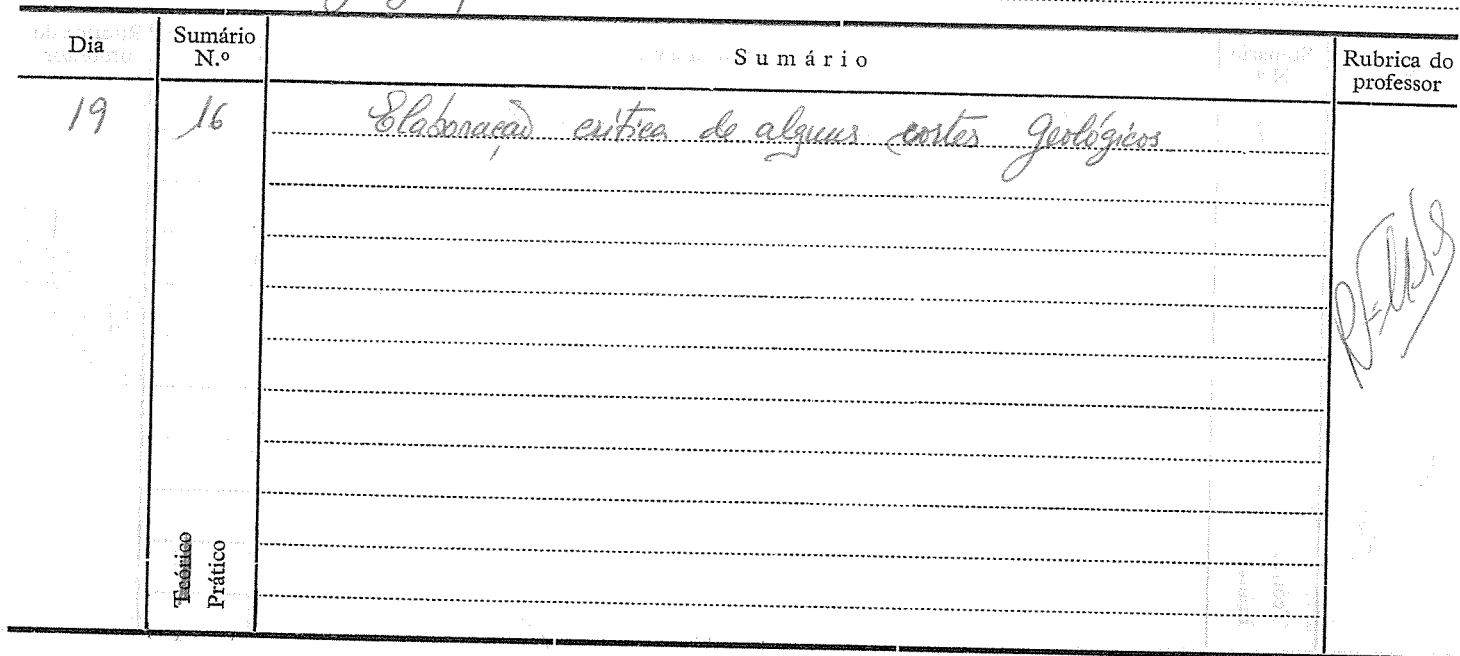 Dia
Sumário N.º
Sumário
Rubrica do professor
19
16
Elaboração critica de alguns cortes Geológicos
Teórico
Prático